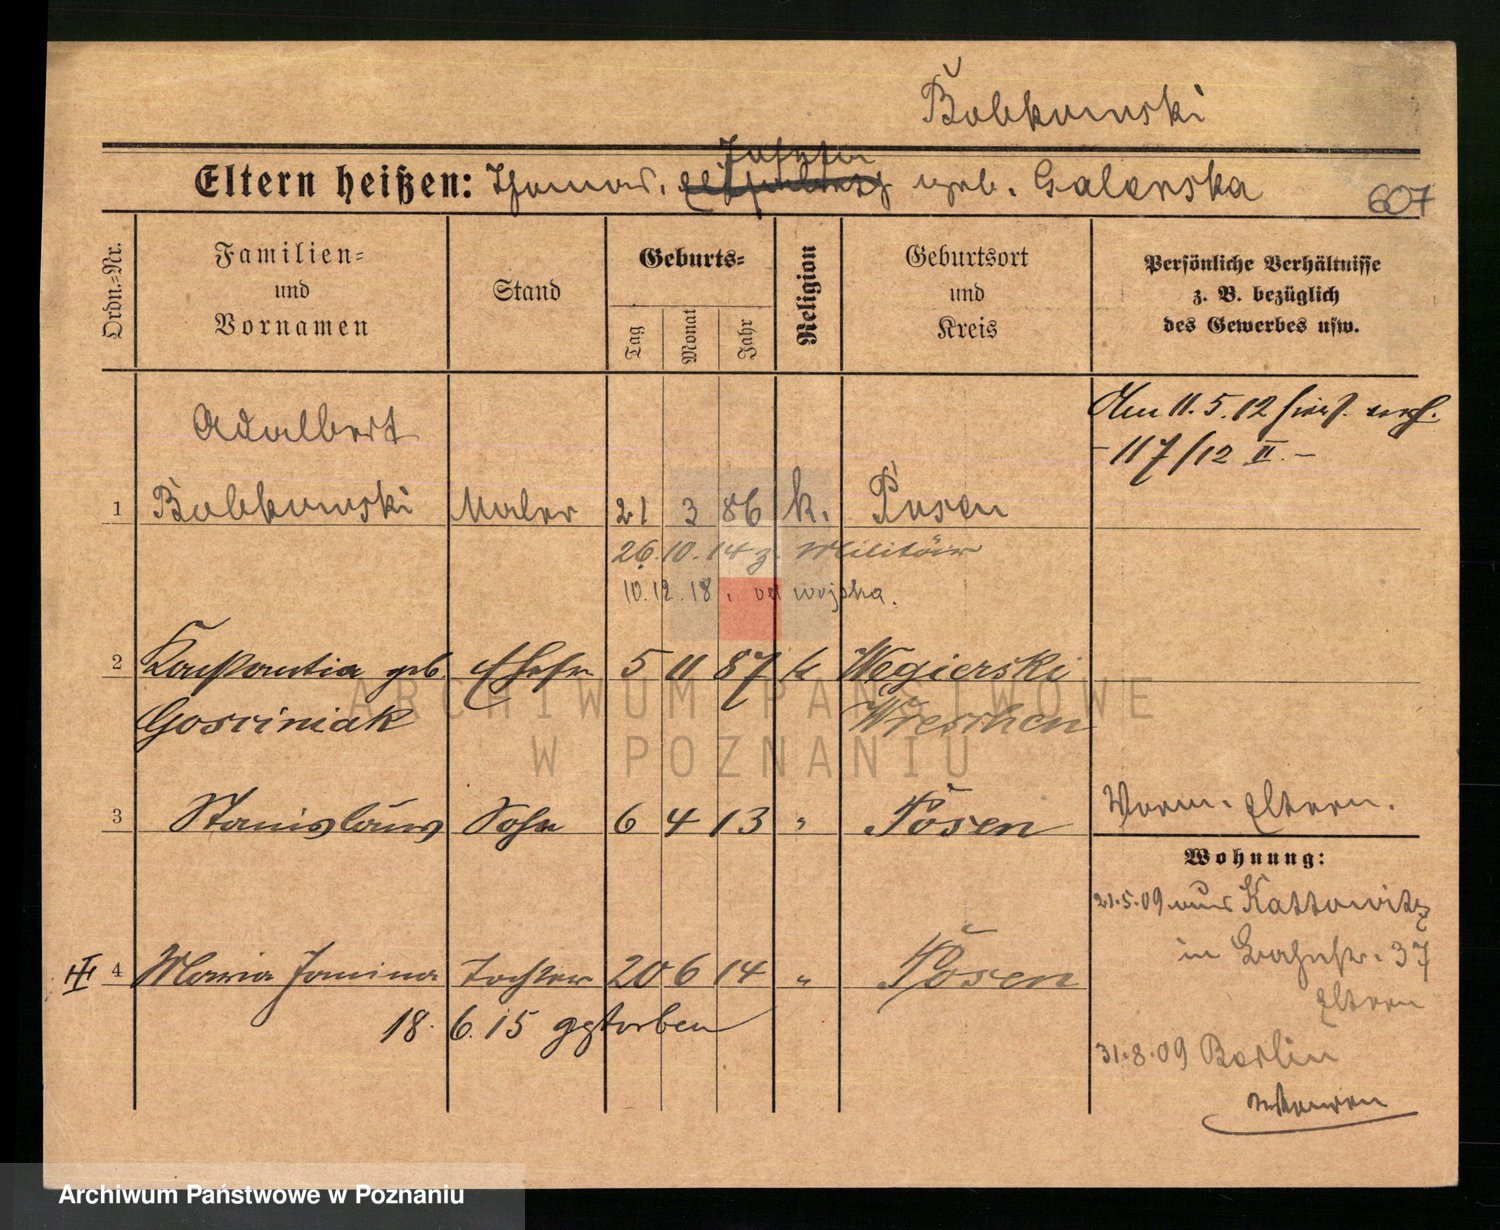 Bobkowski
Eltern heißen: Thomas. Josefa geb. Galenska
607
Ordn.-Nr.
Familien- und Vornamen
Stand
Geburts-
Tag
Monat
Jahr
Religion
Geburtsort und Kreis
Persönliche Verhältnisse
z. B. bezüglich
des Gewerbes usw.
Am 11.5.12
- 117/12 II. -
Adalbert
1 Bobkowski Maler 21 3 86 k. Posen
26.10.14 z. Militär
10.12.18. od wojska.
2 Konstantia geb. Ehefr 5 11 87 k Wegierski
Gosciniak Wreschen
3 Stanislaus Sohn 6 4 13 " Posen
Vorm. Eltern.
Wohnung:
21.5.09 aus Kattowitz
in Bahnstr. 37
Eltern
4 Maria Janina Tochter 20 6 14 " Posen
18. 6. 15 gestorben
31.8.09 Berlin
ARCHIWUM PAŃSTWOWE
W POZNANIU
Archiwum Państwowe w Poznaniu